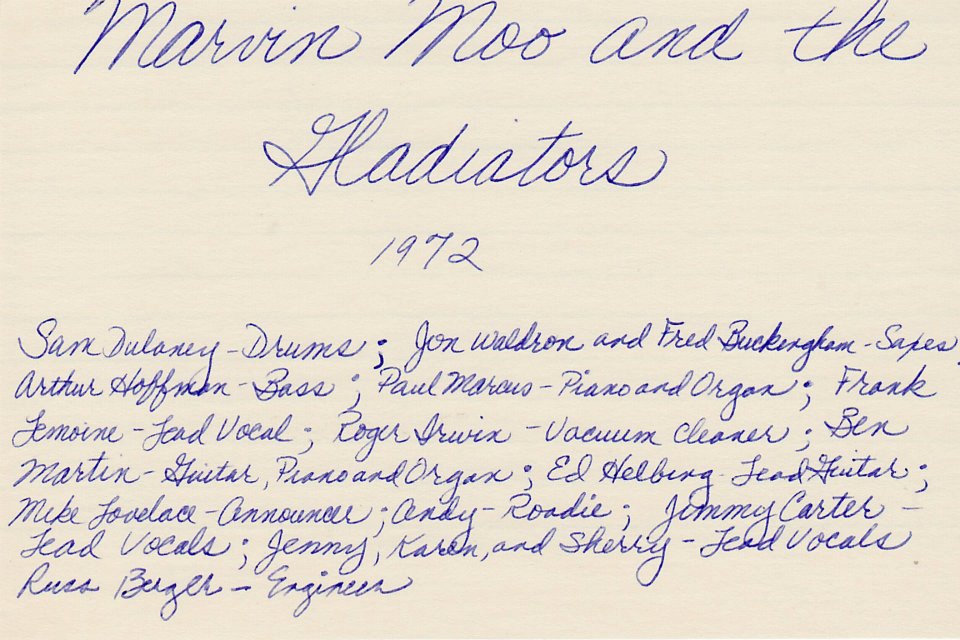 Marvin Moo and the
Gladiators
1972
Sam Dulaney - Drums; Jon Waldron and Fred Buckingham - Saxes
Arthur Hoffman - Bass; Paul Marcus - Piano and Organ; Frank
Lemoine - Lead Vocal; Roger Irwin - Vacuum Cleaner; Ben
Martin - Guitar, Piano and Organ; Ed Helbing - Lead Guitar;
Mike Lovelace - Announcer; Andy - Roadie; Jimmy Carter -
Lead Vocals; Jenny, Karen, and Sherry - Lead Vocals
Russ Berger - Engineer